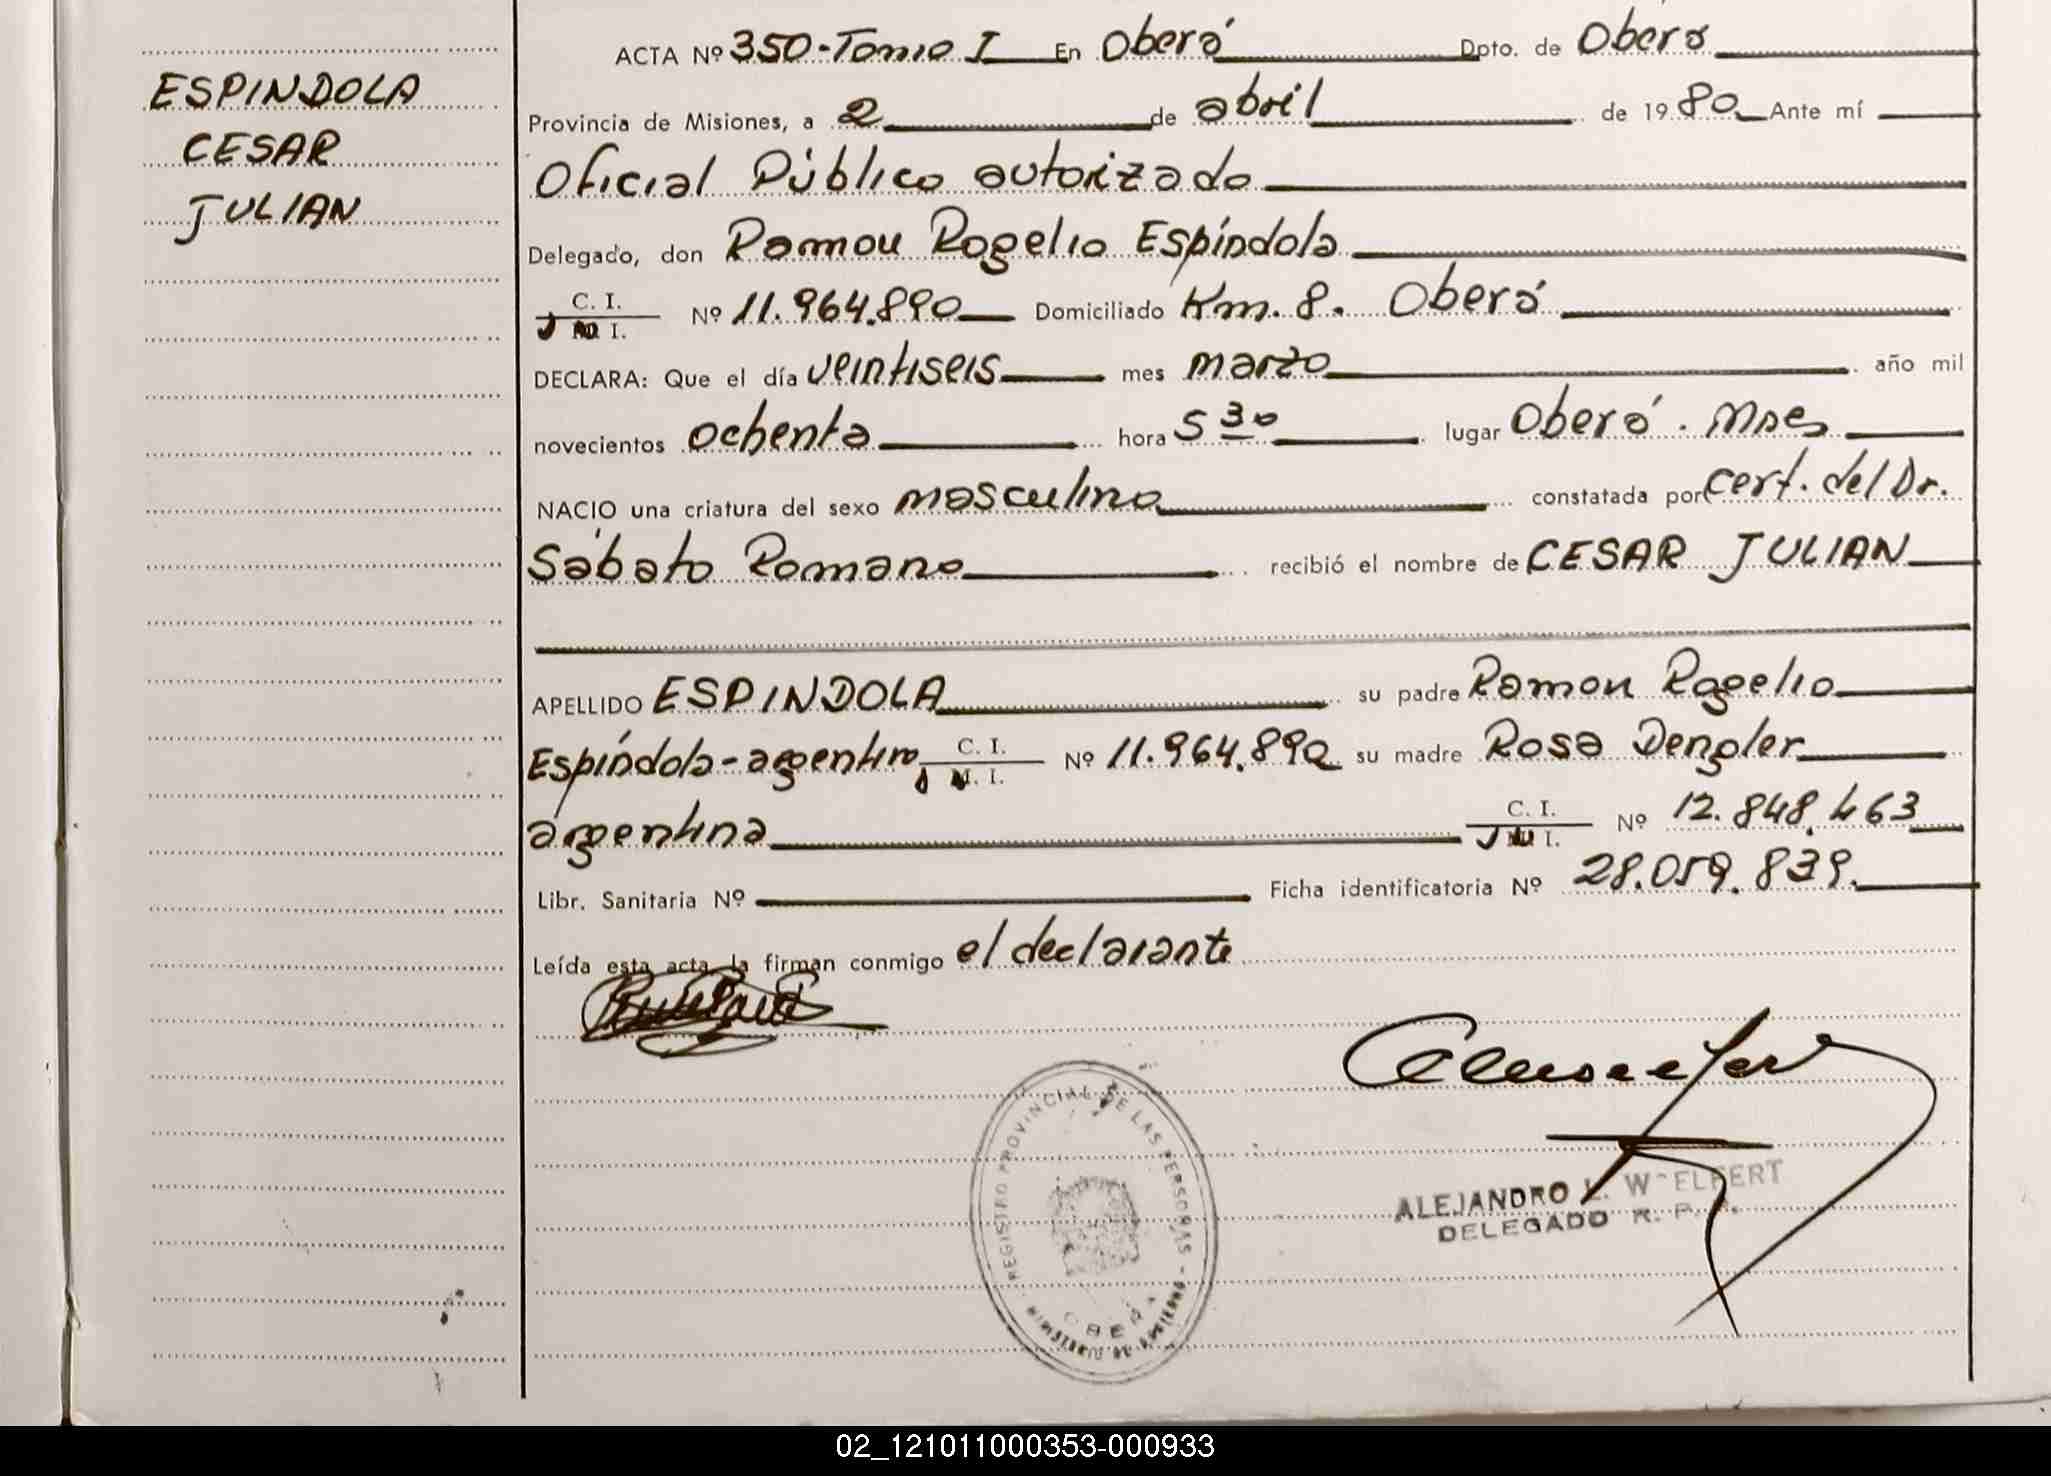 ESPINDOLA
CESAR
JULIAN
ACTA Nº 350-Tomo I En Oberá Dpto. de Oberá
Provincia de Misiones, a 2 de abril de 1980 Ante mí
Oficial Público autorizado
Delegado, don Ramon Rogelio Espíndola
C. I.
M. I.
Nº 11.964.890 Domiciliado Km. 8. Oberá
DECLARA: Que el día veintiseis mes marzo año mil
novecientos ochenta hora 5 30 lugar Oberá. Mnes
NACIO una criatura del sexo masculino constatada por cert. del Dr.
Sábato Romano recibió el nombre de CESAR JULIAN
APELLIDO ESPINDOLA su padre Ramon Rogelio
Espíndola-argentino C. I. Nº 11.964.890 su madre Rosa Dengler
M. I.
argentina C. I. Nº 12.848.463
I.
Libr. Sanitaria Nº Ficha identificatoria Nº 28.059.839.
Leída esta acta, la firman conmigo el declarante
REGISTRO PROVINCIAL DE LAS PERSONAS -
OBERA
ALEJANDRO L. WELFERT
DELEGADO R. P.
02_121011000353-000933